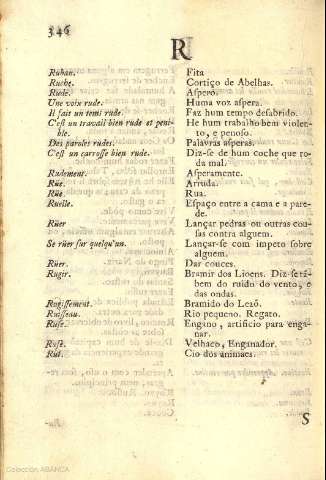 346
R
Ruban. Fita
Ruche. Cortiço de Abelhas.
Rude. Aſpero.
Une voix rude. Huma voz aſpera.
Il fait un tems rude. Faz hum tempo deſabrido.
C'eſt un travail bien rude et peni- He hum trabalho bem violen-
ble. to, e penoſo.
Des paroles rudes. Palavras aſperas.
C'eſt un carroſſe bien rude. Diz-ſe de hum coche que ro-
da mal.
Rudement. Aſperamente.
Rüe. Arruda.
Rüe. Rua.
Ruelle. Eſpaço entre a cama e a pare-
de.
Rüer Lançar pedras ou outras cou-
ſas contra alguem.
Se rüer ſur quelqu'un. Lançar-ſe com impeto ſobre
alguem.
Rüer. Dar couces.
Rugir. Bramir dos Lioens. Diz-ſe tã-
bem do ruido do vento, e
das ondas.
Rugiſſement. Bramido do Lezõ.
Ruiſſeau. Rio pequeno. Regato.
Ruſe. Engano, artificio para enga-
nar.
Ruſé. Velhaco, Enganador.
Rut. Cio dos animaes.
S
Colección ABANCA